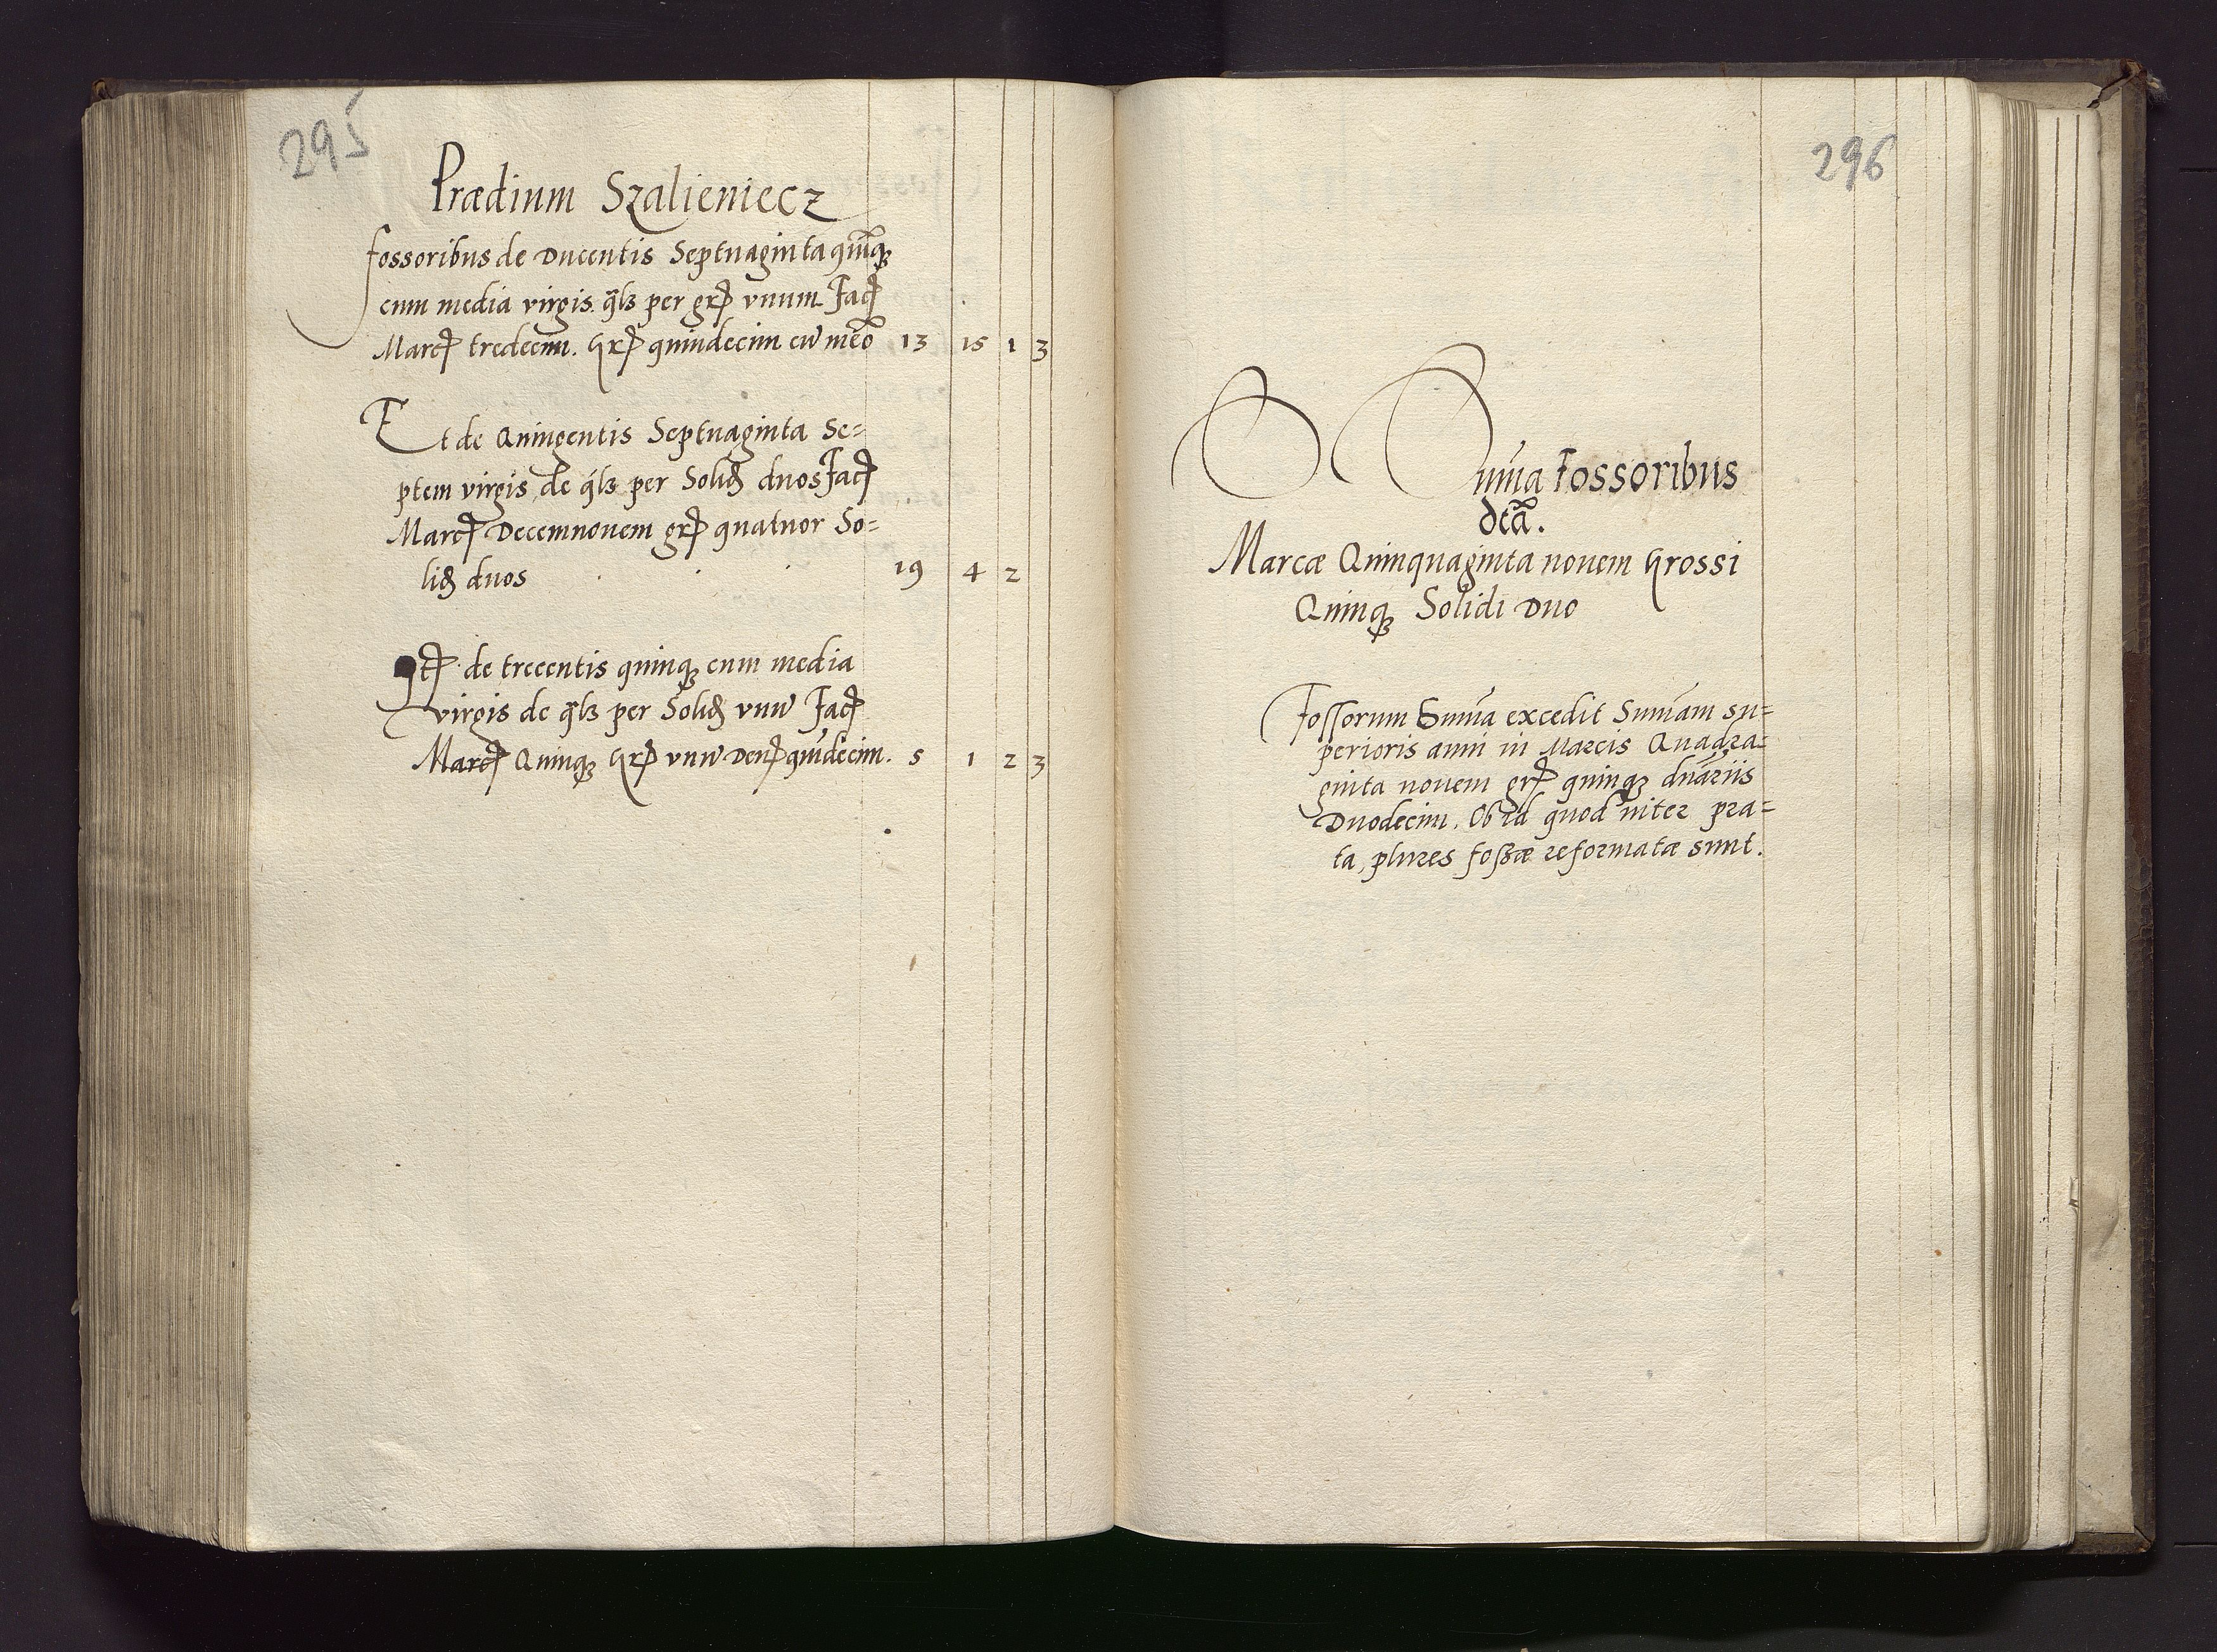 295
Prædium Szalieniecz
fossoribus de Ducentis Septuaginta quīqꝫ
cum media virgis. q̄lꝫ per grꝭ vnum. Facꝭ
Marcꝭ tredecim. Grꝭ quindecim cū meō 13 15 1 3
Et de Quingentis Septuaginta Se=
ptem virgis de q̄lꝫ per Solid duos Facꝭ
Marcꝭ Decemnouem grꝭ quatuor So=
lid duos 19 4 2
Itꝭ de trecentis quinqꝫ cum media
virgis de q̄lꝫ per Solid vnū Facꝭ
Marcꝭ Quinqꝫ Grꝭ vnū Denꝭ quīdecim. 5 1 2 3
296
Sum̄a Fossoribus
dc̄ta.
Marcæ Quinquaginta nouem Grossi
Quinqꝫ Solidi Duo
Fossorum Sum̄a excedit Sum̄am su=
perioris anni in Marcis Quadra=
ginta nouem grꝭ quinqꝫ dn̄ariis
Duodecim. Ob id quod inter pra=
ta, plures foßæ reformatæ sunt.